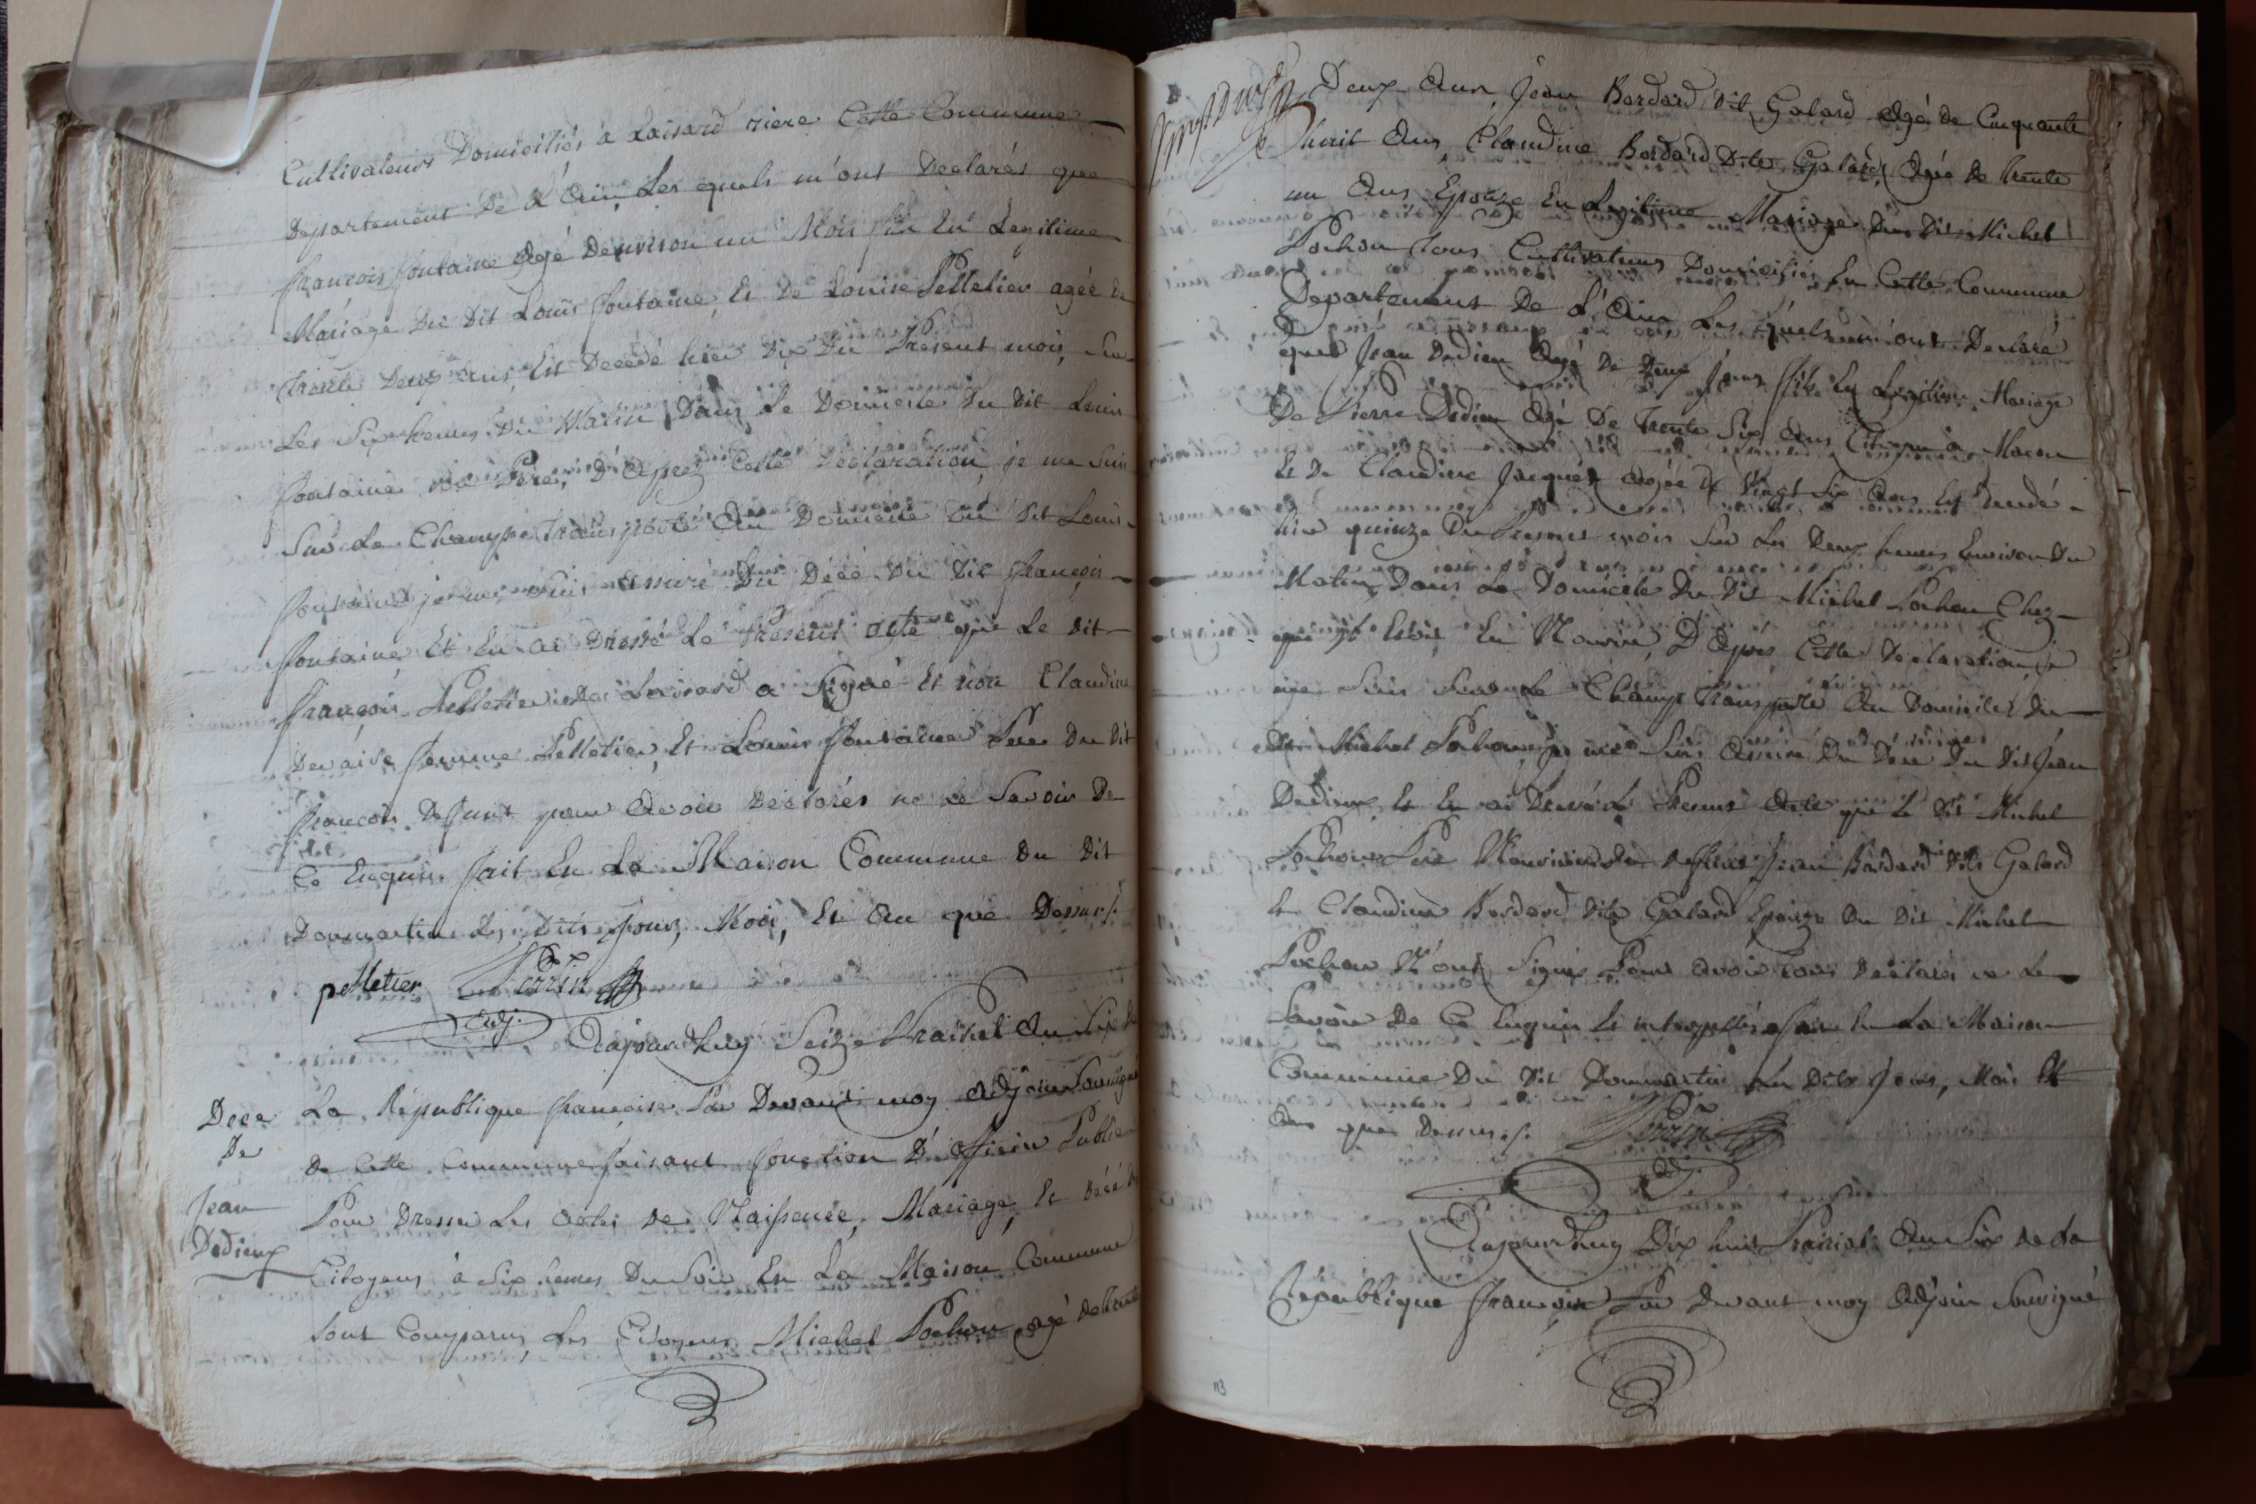 Cultivateurs Domiciliés à Laisard riere Cette Commune
Departement De L'Ain, Les quels m'ont Declarés que
françois fontaine Agé Denviron un Mois fils En Legitime
Mariage Du Dit Louis fontaine, Et De Louise Pelletier agée de
Trente Deux ans, Est Decedé hier Dix Du Present mois, Sur
Les Six heures Du Matin Dans Le Domicile Du Dit Louis
fontaine Père, D'Aprez Cette Declaration, je me Suis
Sur Le Champs Transporté Au Domicile du Dit Louis
fontaine je me suis assuré Du Décé Du Dit françois
fontaine Et En ai Dressé Le Présent Acte que Le Dit
françois Pelletier De Laisard a Signé Et non Claudine
femme Pelletier, Et Louis fontaine Pere Du Dit
françois Defunt pour Avoir Declarés ne Le Savoir De
Ce Enquis fait En La Maison Commune Du Dit
Dommartin Les Dits Jour, Mois, Et An que Dessus ./.
pelletier Perrin
adj.
Aujourd'huy Seize Prairial An Six De
Dece
De
Jean
Dedieux
La République françoise Par Devant moy Adjoin Soussigné
De Cette Commune faisant fonction D'officier Public
Pour Dresser Les Actes De Naissence, Mariage, Et Décé Des
Citoyens à Six heures Du Soir En La Maison Commune
Sont Comparus Les Citoyens Michel Pochon agé De trente
Deux Ans, Jean Bordard Dit Galard Agé De Cinquante
huit Ans, Claudine Bordard Dite Galard, Agée De trente
un Ans, Epouze En Legitime Mariage Du Dit Michel
Pochon tous Cultivateurs Domiciliés En Cette Commune
Departement De L'Ain Les quels m'ont Declaré
que Jean Dedieu Agé De Deux Jours fils En Legitime Mariage
De Pierre Dedieu Agé De Trente Six Ans Citoyen à Macon
Et De Claudine Jacquet Agée De Vingt Six Ans Est Décédé
hier quinze Du Present mois Sur Les Deux heures Environ Du
Matin Dans Le Domicile Du Dit Michel Pochon Chez
qui il Estoit En Nourice, D'Aprés Cette Declaration, je
me Suis Sur Le Champs Transporté Au Domicile Du
dit Michel Pochon, je me Suis Assuré Du Décé Du Dit Jean
Dedieux, Et En ai Dressé Le Present Acte que Le Dit Michel
Pochon Père Nouricier Du Defunt Jean Bordard Dit Galard
Et Claudine Bordard Dite Galard Epouze Du Dit Michel
Pochon N'ont Signés Pour avoir tous Declarés ne Le
Savoir De Ce Enquis Et interpellés fait En La Maison
Commune Du Dit Dommartin Les Dits Jour, Mois Et
An que Dessus ./. Perrin
adj.
Aujourd'huy Dix huit Prairial An Six de La
République françoise Par Devant moy Adjoin Soussigné
113